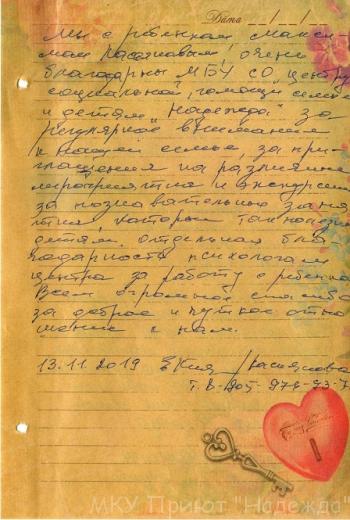 Дата __/__/__
Мы с ребенком Макси-
мом очень
благодарны МБУ СО "Центр
социальной помощи семье
и детям "Надежда" за
регулярное внимание
к нашей семье, за при-
глашения на различные
мероприятия и экскурсии
за познавательные заня
тия, которые так
детям. Отдельная бла
годарность психологам
центра за работу с ребенком
Всем огромное спасибо
за доброе и чуткое отно
шение к нам.
13.11.2019
МКУ Приют "Надежда"